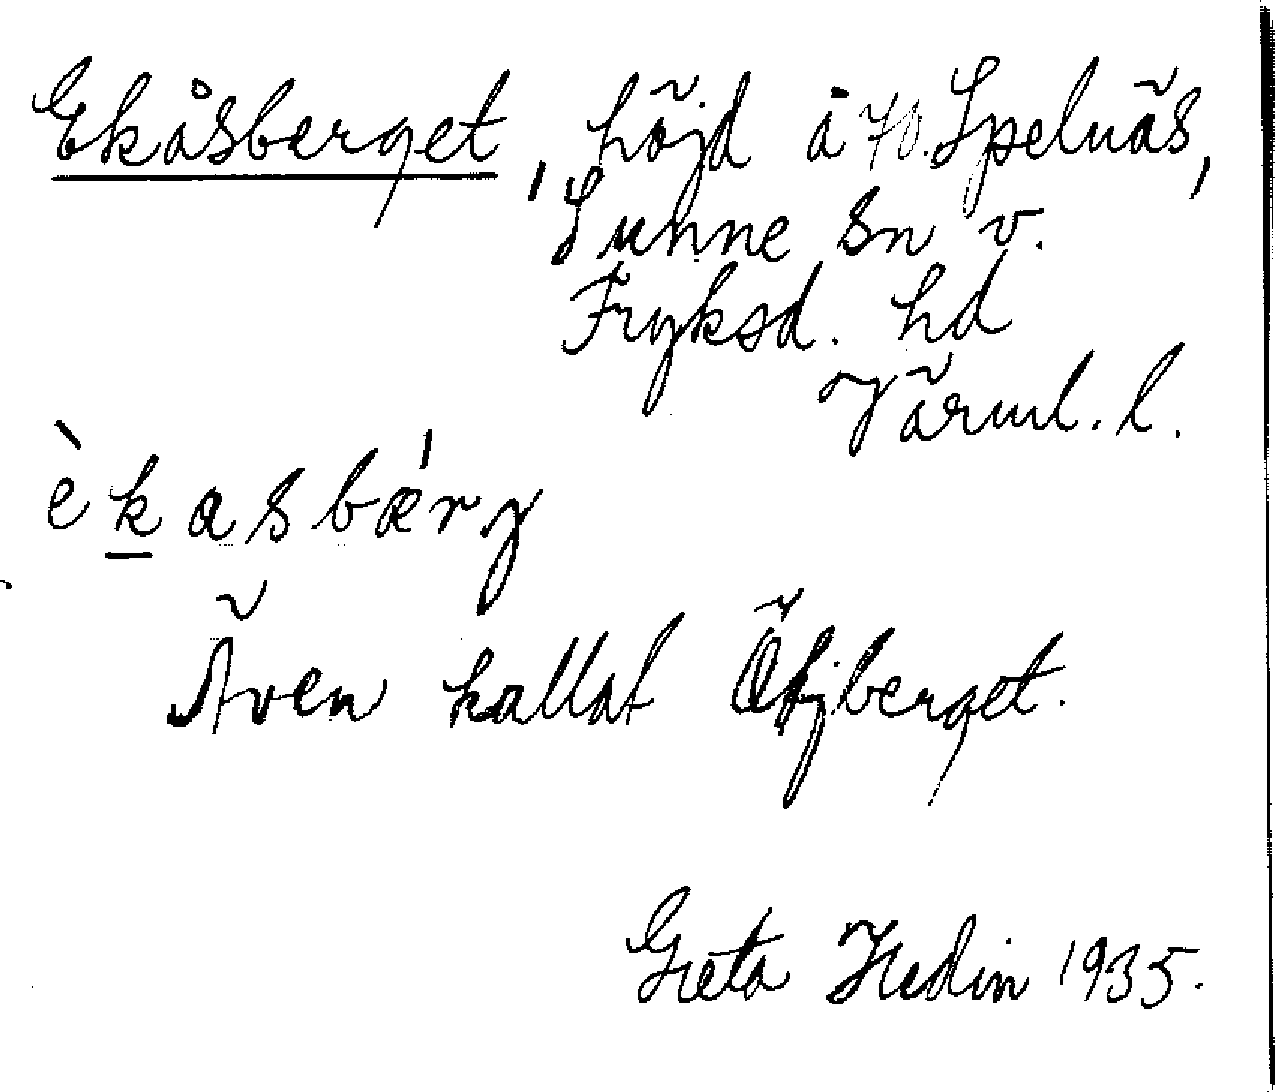 Ekåsberget, höjd å 70. Spelnäs,
Sunne sn v.
Fryksd. hd
Värml. l.
èkasbǽrg
Även kallat Öfjberget.
Greta Hedin 1935.